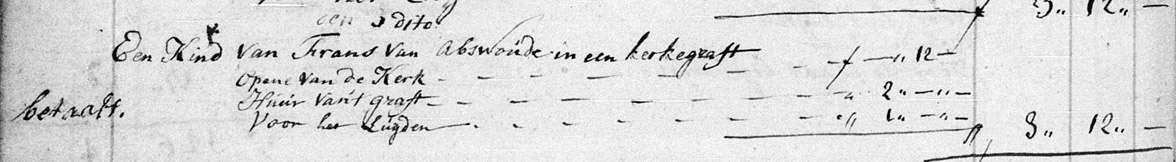 een 3 dito 3„ 12„ —
Een Kind van Frans van Abswoude in een kerkegraft
opene van de Kerk — — — — — ƒ —„ 12 —
betaalt. Huur van't graft — — — — — „ 2„ —„—
Voor het Luyden. — — — — — „ 1„ —„— 3„ 12„ —